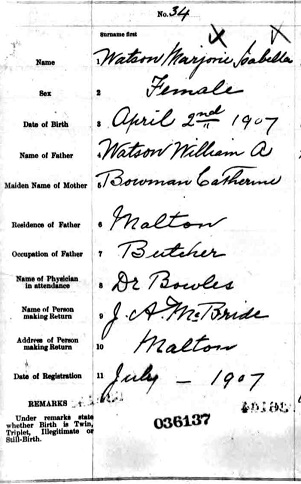 No. 34
Surname first
Name 1 Watson Marjorie Isabella
Sex 2 Female
Date of Birth 3 April 2nd 1907
Name of Father 4 Watson William A
Maiden Name of Mother 5 Bowman Catherine
Residence of Father 6 Malton
Occupation of Father 7 Butcher
Name of Physician
in attendance 8 Dr Bowles
Name of Person
making Return 9 J. A. McBride
Address of Person
making Return 10 Malton
Date of Registration 11 July - 1907
REMARKS
Under remarks state
whether Birth is Twin,
Triplet, Illegitimate or
Still-Birth.
036137